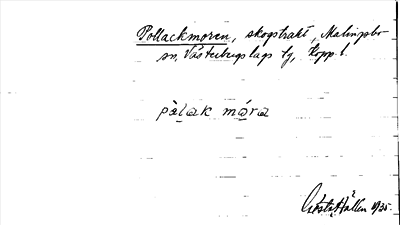 Pollackmoren, skogstrakt, Malingsbo
sn, Västerbergslags tg, Kopp. l.
pàlak måra
Gösta Hallén 1935.